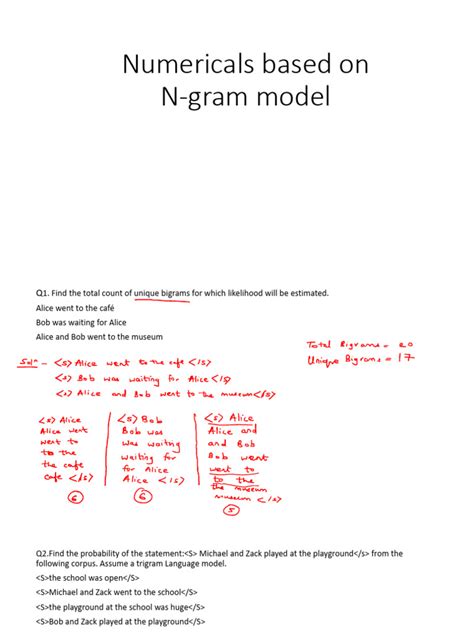 Numericals based on
N-gram model
Q1. Find the total count of unique bigrams for which likelihood will be estimated.
Alice went to the café
Bob was waiting for Alice
Alice and Bob went to the museum
Total Bigrams = 20
Unique Bigrams = 17
Soln - <s> Alice went to the cafe </s>
<s> Bob was waiting for Alice </s>
<s> Alice and Bob went to the museum </s>
<s> Alice
Alice went
went to
to the
the cafe
cafe </s>
6
<s> Bob
Bob was
was waiting
waiting for
for Alice
Alice </s>
6
<s> Alice
Alice and
and Bob
Bob went
went to
to the
the museum
museum </s>
5
Q2.Find the probability of the statement:<S> Michael and Zack played at the playground</s> from the
following corpus. Assume a trigram Language model.
<S>the school was open</S>
<S>Michael and Zack went to the school</S>
<S>the playground at the school was huge</S>
<S>Bob and Zack played at the playground</S>